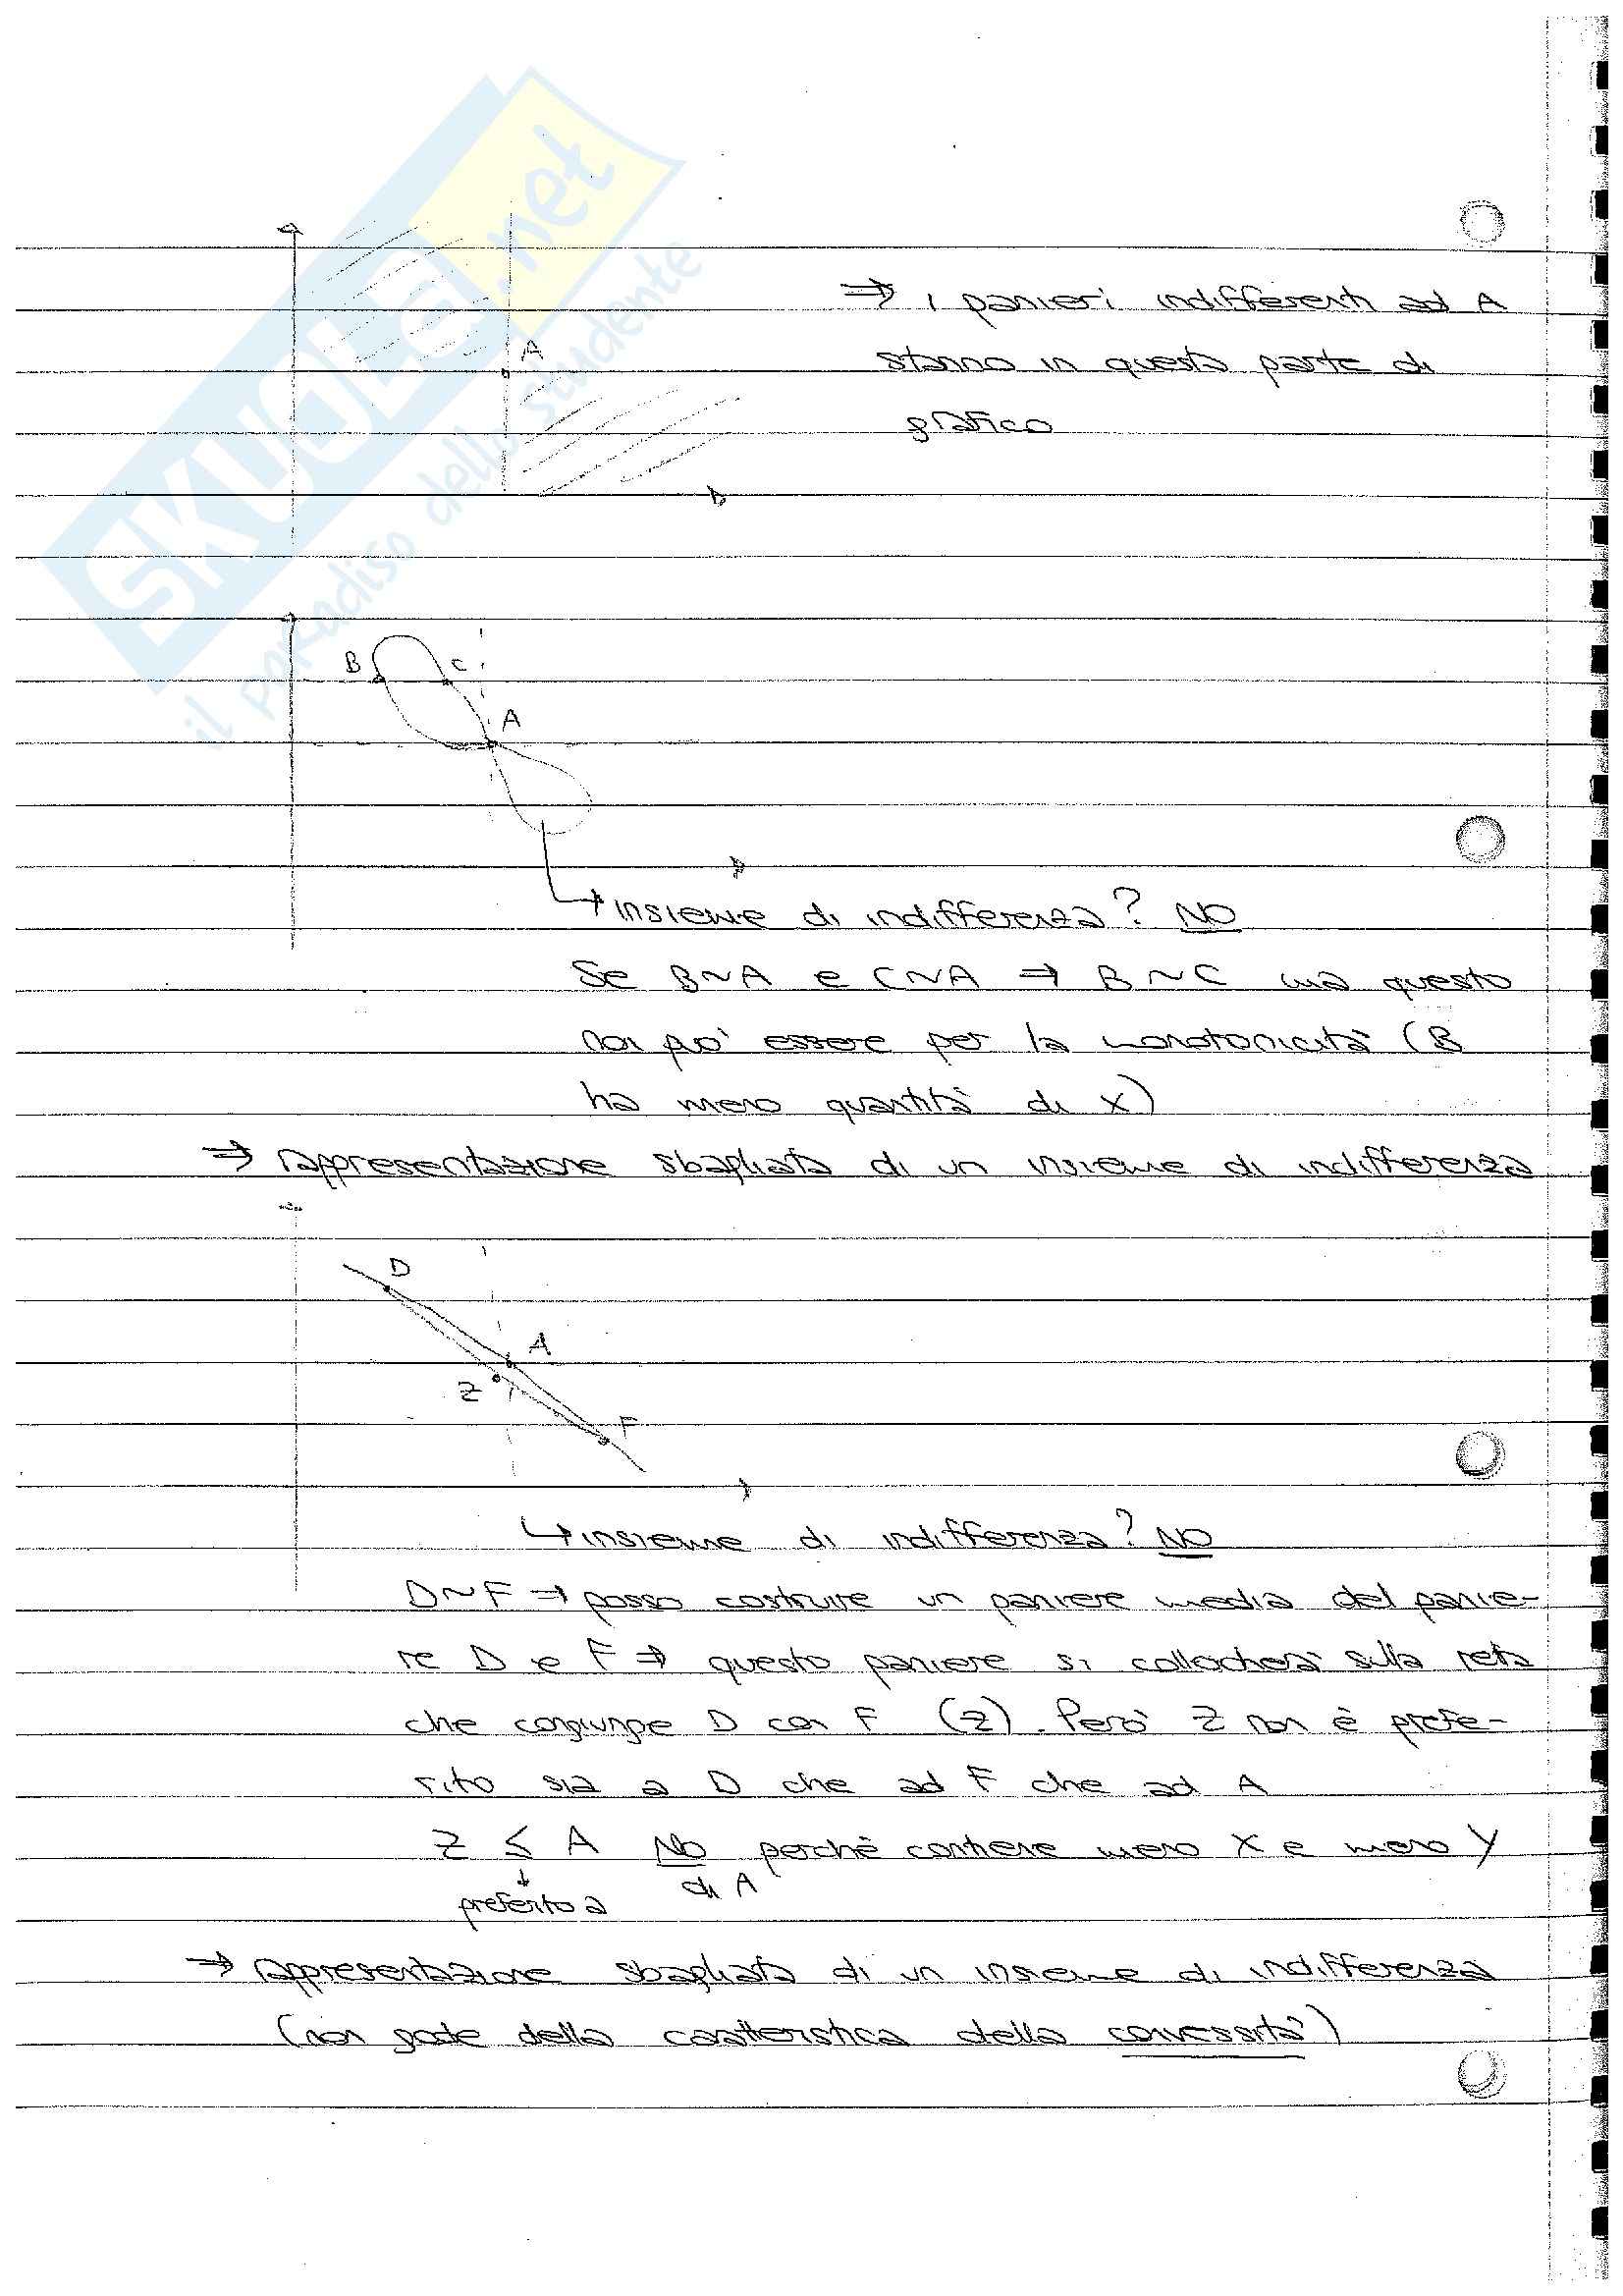 SKUOLA.net
il paradiso dello studente
⇒ i panieri indifferenti ad A
stanno in questa parte di
grafico
A
B
C
A
↳ insieme di indifferenza? NO
Se B~A e C~A ⇒ B~C ma questo
non può essere per la monotonicità (B
ha meno quantità di x)
⇒ rappresentazione sbagliata di un insieme di indifferenza
D
A
Z
F
↳ insieme di indifferenza? NO
D~F ⇒ posso costruire un paniere media del panie-
re D e F ⇒ questo paniere si collocherà sulla retta
che congiunge D con F (Z). Però Z non è prefe-
rito sia a D che ad F che ad A
Z ≤ A No perchè contiene meno X e meno Y
↓
preferito a
di A
⇒ rappresentazione sbagliata di un insieme di indifferenza
(non gode della caratteristica della convessità)